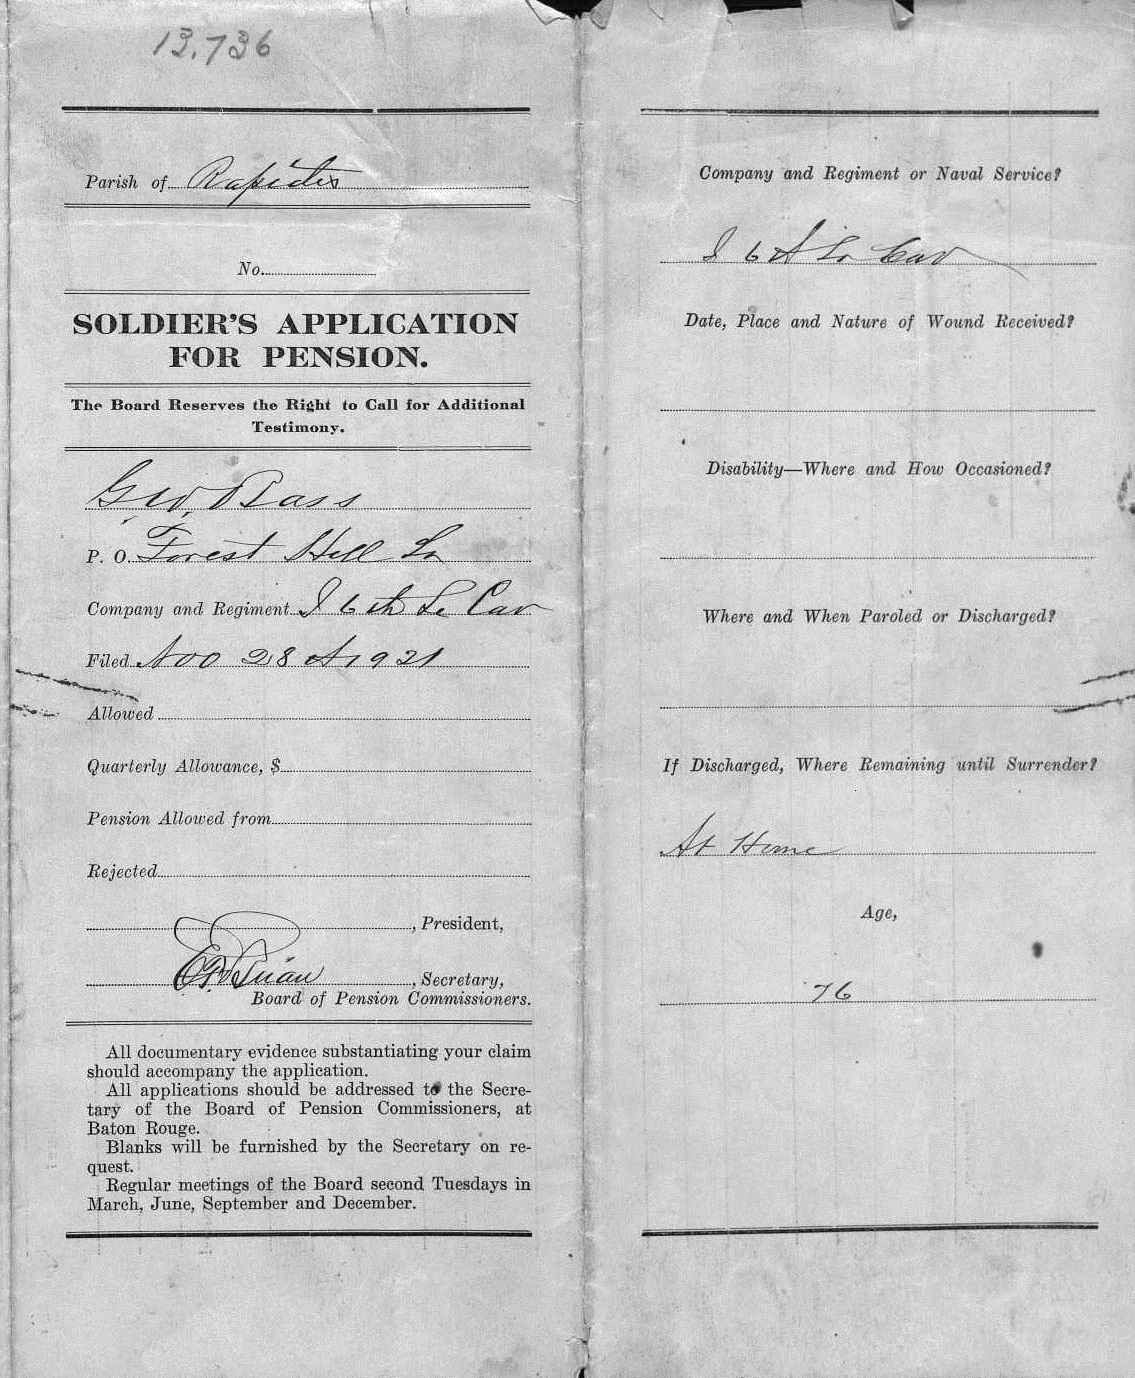 13.736
Parish of Rapides
No.
SOLDIER'S APPLICATION
FOR PENSION.
The Board Reserves the Right to Call for Additional
Testimony.
G W. Bass
P. O. Forest Hill La
Company and Regiment I 6 th La Cav
Filed Nov 28 1921
Allowed
Quarterly Allowance, $
Pension Allowed from
Rejected
, President,
, Secretary,
Board of Pension Commissioners.
All documentary evidence substantiating your claim
should accompany the application.
All applications should be addressed to the Secre-
tary of the Board of Pension Commissioners, at
Baton Rouge.
Blanks will be furnished by the Secretary on re-
quest.
Regular meetings of the Board second Tuesdays in
March, June, September and December.
Company and Regiment or Naval Service?
I 6 La Cav
Date, Place and Nature of Wound Received?
Disability—Where and How Occasioned?
Where and When Paroled or Discharged?
If Discharged, Where Remaining until Surrender?
At Home
Age,
76